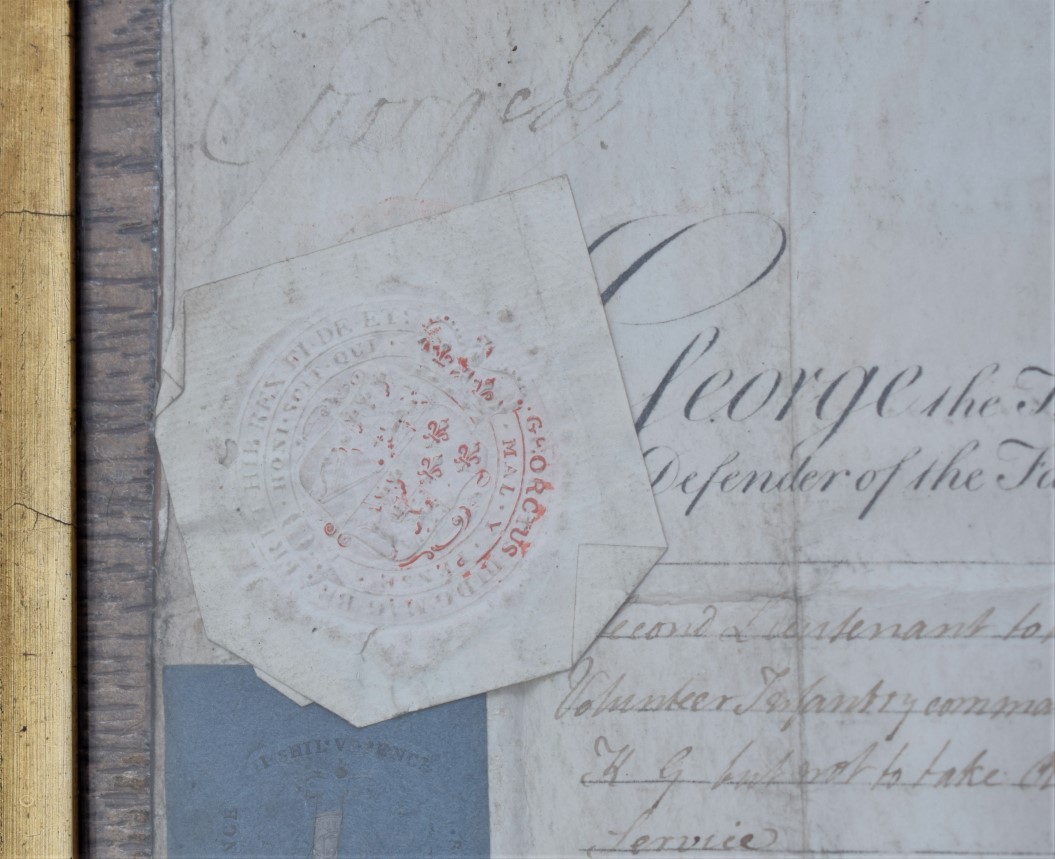 George R
George the
Defender of the
Second Lieutenant to
Volunteer Infantry comma
K G but not to take
Service
GEORGIUS III D G MAG BR ET HIB REX FI DE ET
HONI SOIT QUI MAL Y PENSE
V PENCE